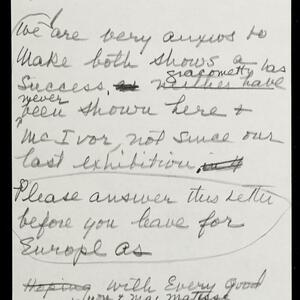 We are very anxious to
make both shows a
success, giacometty has
neither have
never
been shown here +
McIvor, not since our
last exhibition,
Please answer this letter
before you leave for
Europe as
Hoping with every good